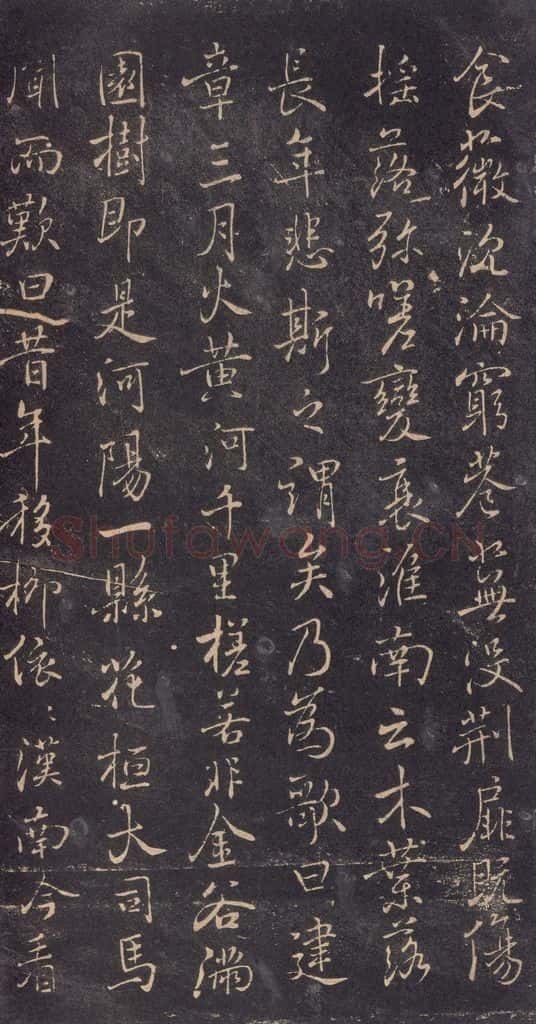 食薇沉淪窮巷蕪沒荊扉既傷
搖落弥嗟變衰淮南云木葉落
長年悲斯之謂矣乃為歌曰建
章三月火黃河千里槎若非金谷滿
園樹即是河陽一縣花桓大司馬
聞而歎曰昔年移柳依〻漢南今看
Shufawang.CN